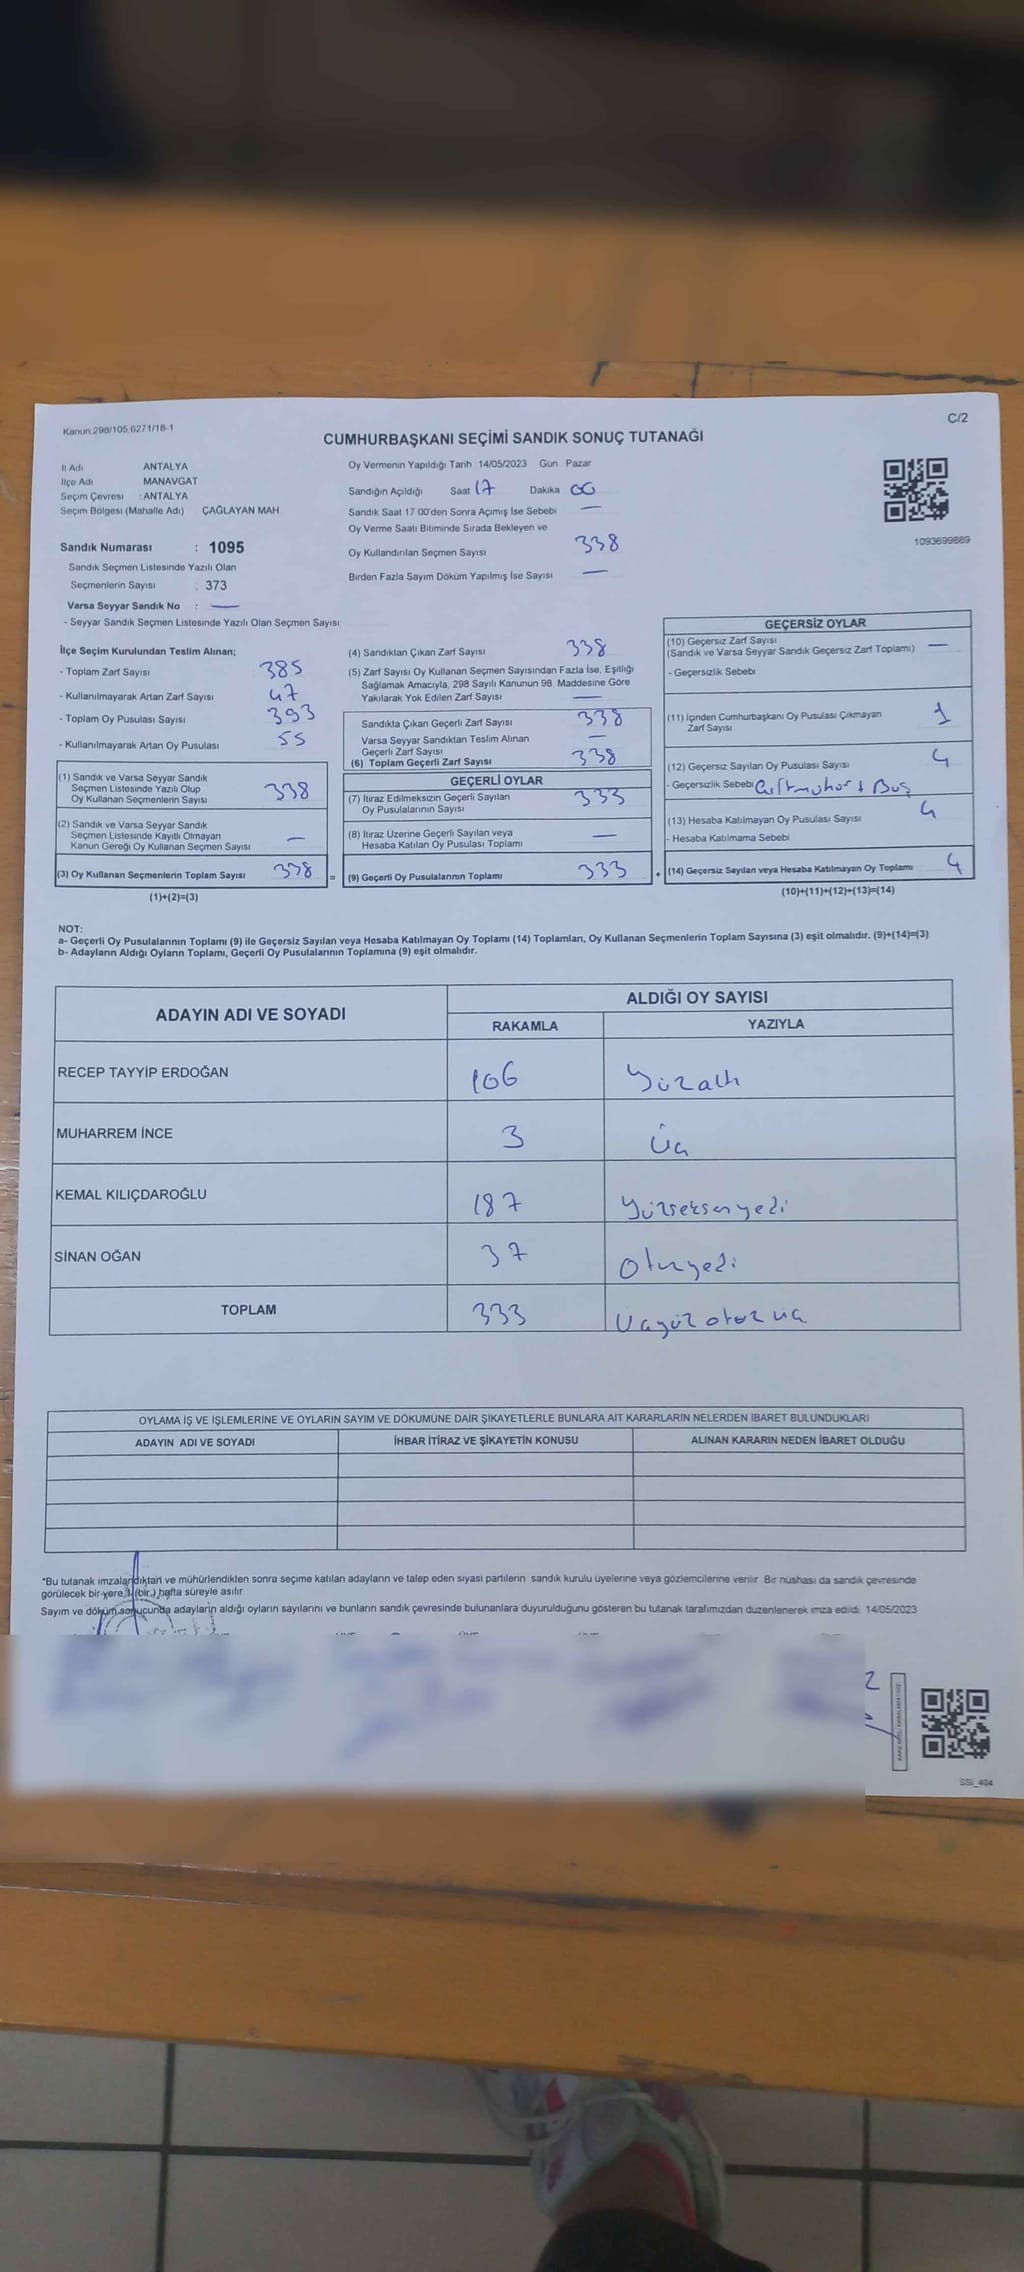 Kanun.298/105.6271/18-1
C/2
CUMHURBAŞKANI SEÇİMİ SANDIK SONUÇ TUTANAĞI
İl Adı ANTALYA
İlçe Adı MANAVGAT
Seçim Çevresi : ANTALYA
Seçim Bölgesi (Mahalle Adı) ÇAĞLAYAN MAH
Sandık Numarası : 1095
- Sandık Seçmen Listesinde Yazılı Olan
Seçmenlerin Sayısı : 373
Varsa Seyyar Sandık No : —
- Seyyar Sandık Seçmen Listesinde Yazılı Olan Seçmen Sayısı
Oy Vermenin Yapıldığı Tarih 14/05/2023 Gün Pazar
Sandığın Açıldığı Saat 17 Dakika 00
Sandık Saat 17 00'den Sonra Açımış İse Sebebi —
Oy Verme Saati Bitiminde Sırada Bekleyen ve
Oy Kullandırılan Seçmen Sayısı 338
Birden Fazla Sayım Döküm Yapılmış İse Sayısı —
1093699889
İlçe Seçim Kurulundan Teslim Alınan;
- Toplam Zarf Sayısı 385
- Kullanılmayarak Artan Zarf Sayısı 47
- Toplam Oy Pusulası Sayısı 393
- Kullanılmayarak Artan Oy Pusulası 55
(1) Sandık ve Varsa Seyyar Sandık
Seçmen Listesinde Yazılı Olup
Oy Kullanan Seçmenlerin Sayısı 338
(2) Sandık ve Varsa Seyyar Sandık
Seçmen Listesinde Kayıtlı Olmayan
Kanun Gereği Oy Kullanan Seçmen Sayısı —
(3) Oy Kullanan Seçmenlerin Toplam Sayısı 338
(1)+(2)=(3)
(4) Sandıktan Çıkan Zarf Sayısı 338
(5) Zarf Sayısı Oy Kullanan Seçmen Sayısından Fazla İse, Eşitliği
Sağlamak Amacıyla, 298 Sayılı Kanunun 98. Maddesine Göre
Yakılarak Yok Edilen Zarf Sayısı —
Sandıkta Çıkan Geçerli Zarf Sayısı 338
Varsa Seyyar Sandıktan Teslim Alınan
Geçerli Zarf Sayısı —
(6) Toplam Geçerli Zarf Sayısı 338
GEÇERLİ OYLAR
(7) İtiraz Edilmeksizin Geçerli Sayılan
Oy Pusulalarının Sayısı 333
(8) İtiraz Üzerine Geçerli Sayılan veya
Hesaba Katılan Oy Pusulası Toplamı —
= (9) Geçerli Oy Pusulalarının Toplamı 333
GEÇERSİZ OYLAR
(10) Geçersiz Zarf Sayısı
(Sandık ve Varsa Seyyar Sandık Geçersiz Zarf Toplamı) —
- Geçersizlik Sebebi
(11) İçinden Cumhurbaşkanı Oy Pusulası Çıkmayan
Zarf Sayısı 1
(12) Geçersiz Sayılan Oy Pusulası Sayısı 4
- Geçersizlik Sebebi Çift mühür + Boş
(13) Hesaba Katılmayan Oy Pusulası Sayısı 4
- Hesaba Katılmama Sebebi
+ (14) Geçersiz Sayılan veya Hesaba Katılmayan Oy Toplamı 4
(10)+(11)+(12)+(13)=(14)
NOT:
a- Geçerli Oy Pusulalarının Toplamı (9) ile Geçersiz Sayılan veya Hesaba Katılmayan Oy Toplamı (14) Toplamları, Oy Kullanan Seçmenlerin Toplam Sayısına (3) eşit olmalıdır. (9)+(14)=(3)
b- Adayların Aldığı Oyların Toplamı, Geçerli Oy Pusulalarının Toplamına (9) eşit olmalıdır.
ADAYIN ADI VE SOYADI
ALDIĞI OY SAYISI
RAKAMLA YAZIYLA
RECEP TAYYİP ERDOĞAN 106 Yüzaltı
MUHARREM İNCE 3 Üç
KEMAL KILIÇDAROĞLU 187 Yüzseksenyedi
SİNAN OĞAN 37 Otuzyedi
TOPLAM 333 Üçyüz otuz üç
OYLAMA İŞ VE İŞLEMLERİNE VE OYLARIN SAYIM VE DÖKÜMÜNE DAİR ŞİKAYETLERLE BUNLARA AİT KARARLARIN NELERDEN İBARET BULUNDUKLARI
ADAYIN ADI VE SOYADI İHBAR İTİRAZ VE ŞİKAYETİN KONUSU ALINAN KARARIN NEDEN İBARET OLDUĞU
*Bu tutanak imzalandıktan ve mühürlendikten sonra seçime katılan adayların ve talep eden siyasi partilerin sandık kurulu üyelerine veya gözlemcilerine verilir. Bir nüshası da sandık çevresinde
görülecek bir yere, 1 (bir) hafta süreyle asılır
Sayım ve döküm sonucunda adayların aldığı oyların sayılarını ve bunların sandık çevresinde bulunanlara duyurulduğunu gösteren bu tutanak tarafımızdan düzenlenerek imza edildi. 14/05/2023
SSI_404